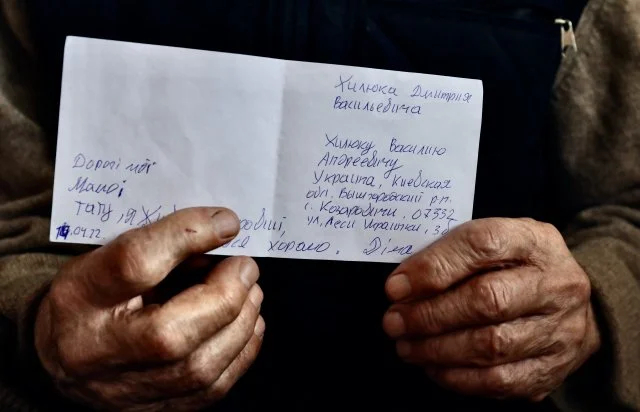 Хилюка Дмитрия
Васильевича
Хилюку Василию
Андреевичу
Украина, Киевская
обл. Вышгородский р.н.
с. Козаровичи, 07332
ул. Леси Украинки, 3
Дорогі мої
Мамо і
тату, я
04.22.
хорошо. Діма